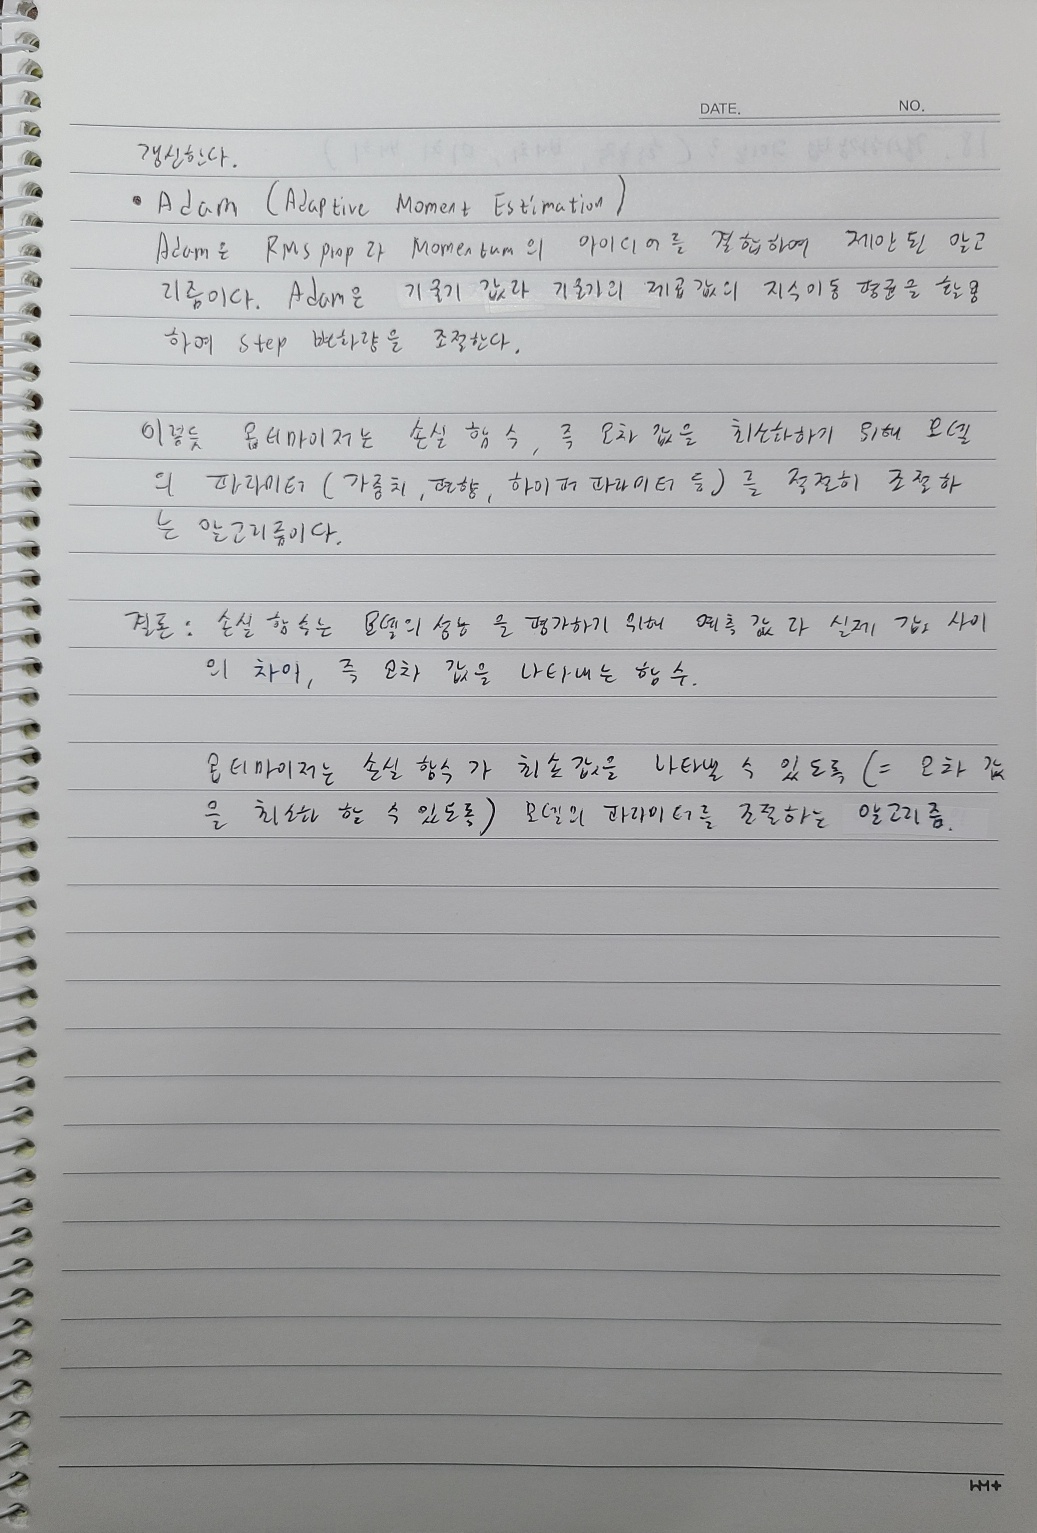 DATE. NO.
갱신한다.
• Adam (Adaptive Moment Estimation)
Adam은 RMSprop과 Momentum의 아이디어를 결합하여 제안된 알고
리즘이다. Adam은 기울기 값과 기울기의 제곱값의 지수이동 평균을 활용
하여 step 변화량을 조절한다.
이렇듯 옵티마이저는 손실 함수, 즉 오차 값을 최소화하기 위해 모델
의 파라미터 (가중치, 편향, 하이퍼 파라미터 등)를 적절히 조절하
는 알고리즘이다.
결론: 손실 함수는 모델의 성능을 평가하기 위해 예측 값과 실제 값 사이
의 차이, 즉 오차 값을 나타내는 함수.
옵티마이저는 손실 함수가 최솟값을 나타낼 수 있도록 (= 오차 값
을 최소화 할 수 있도록) 모델의 파라미터를 조절하는 알고리즘.